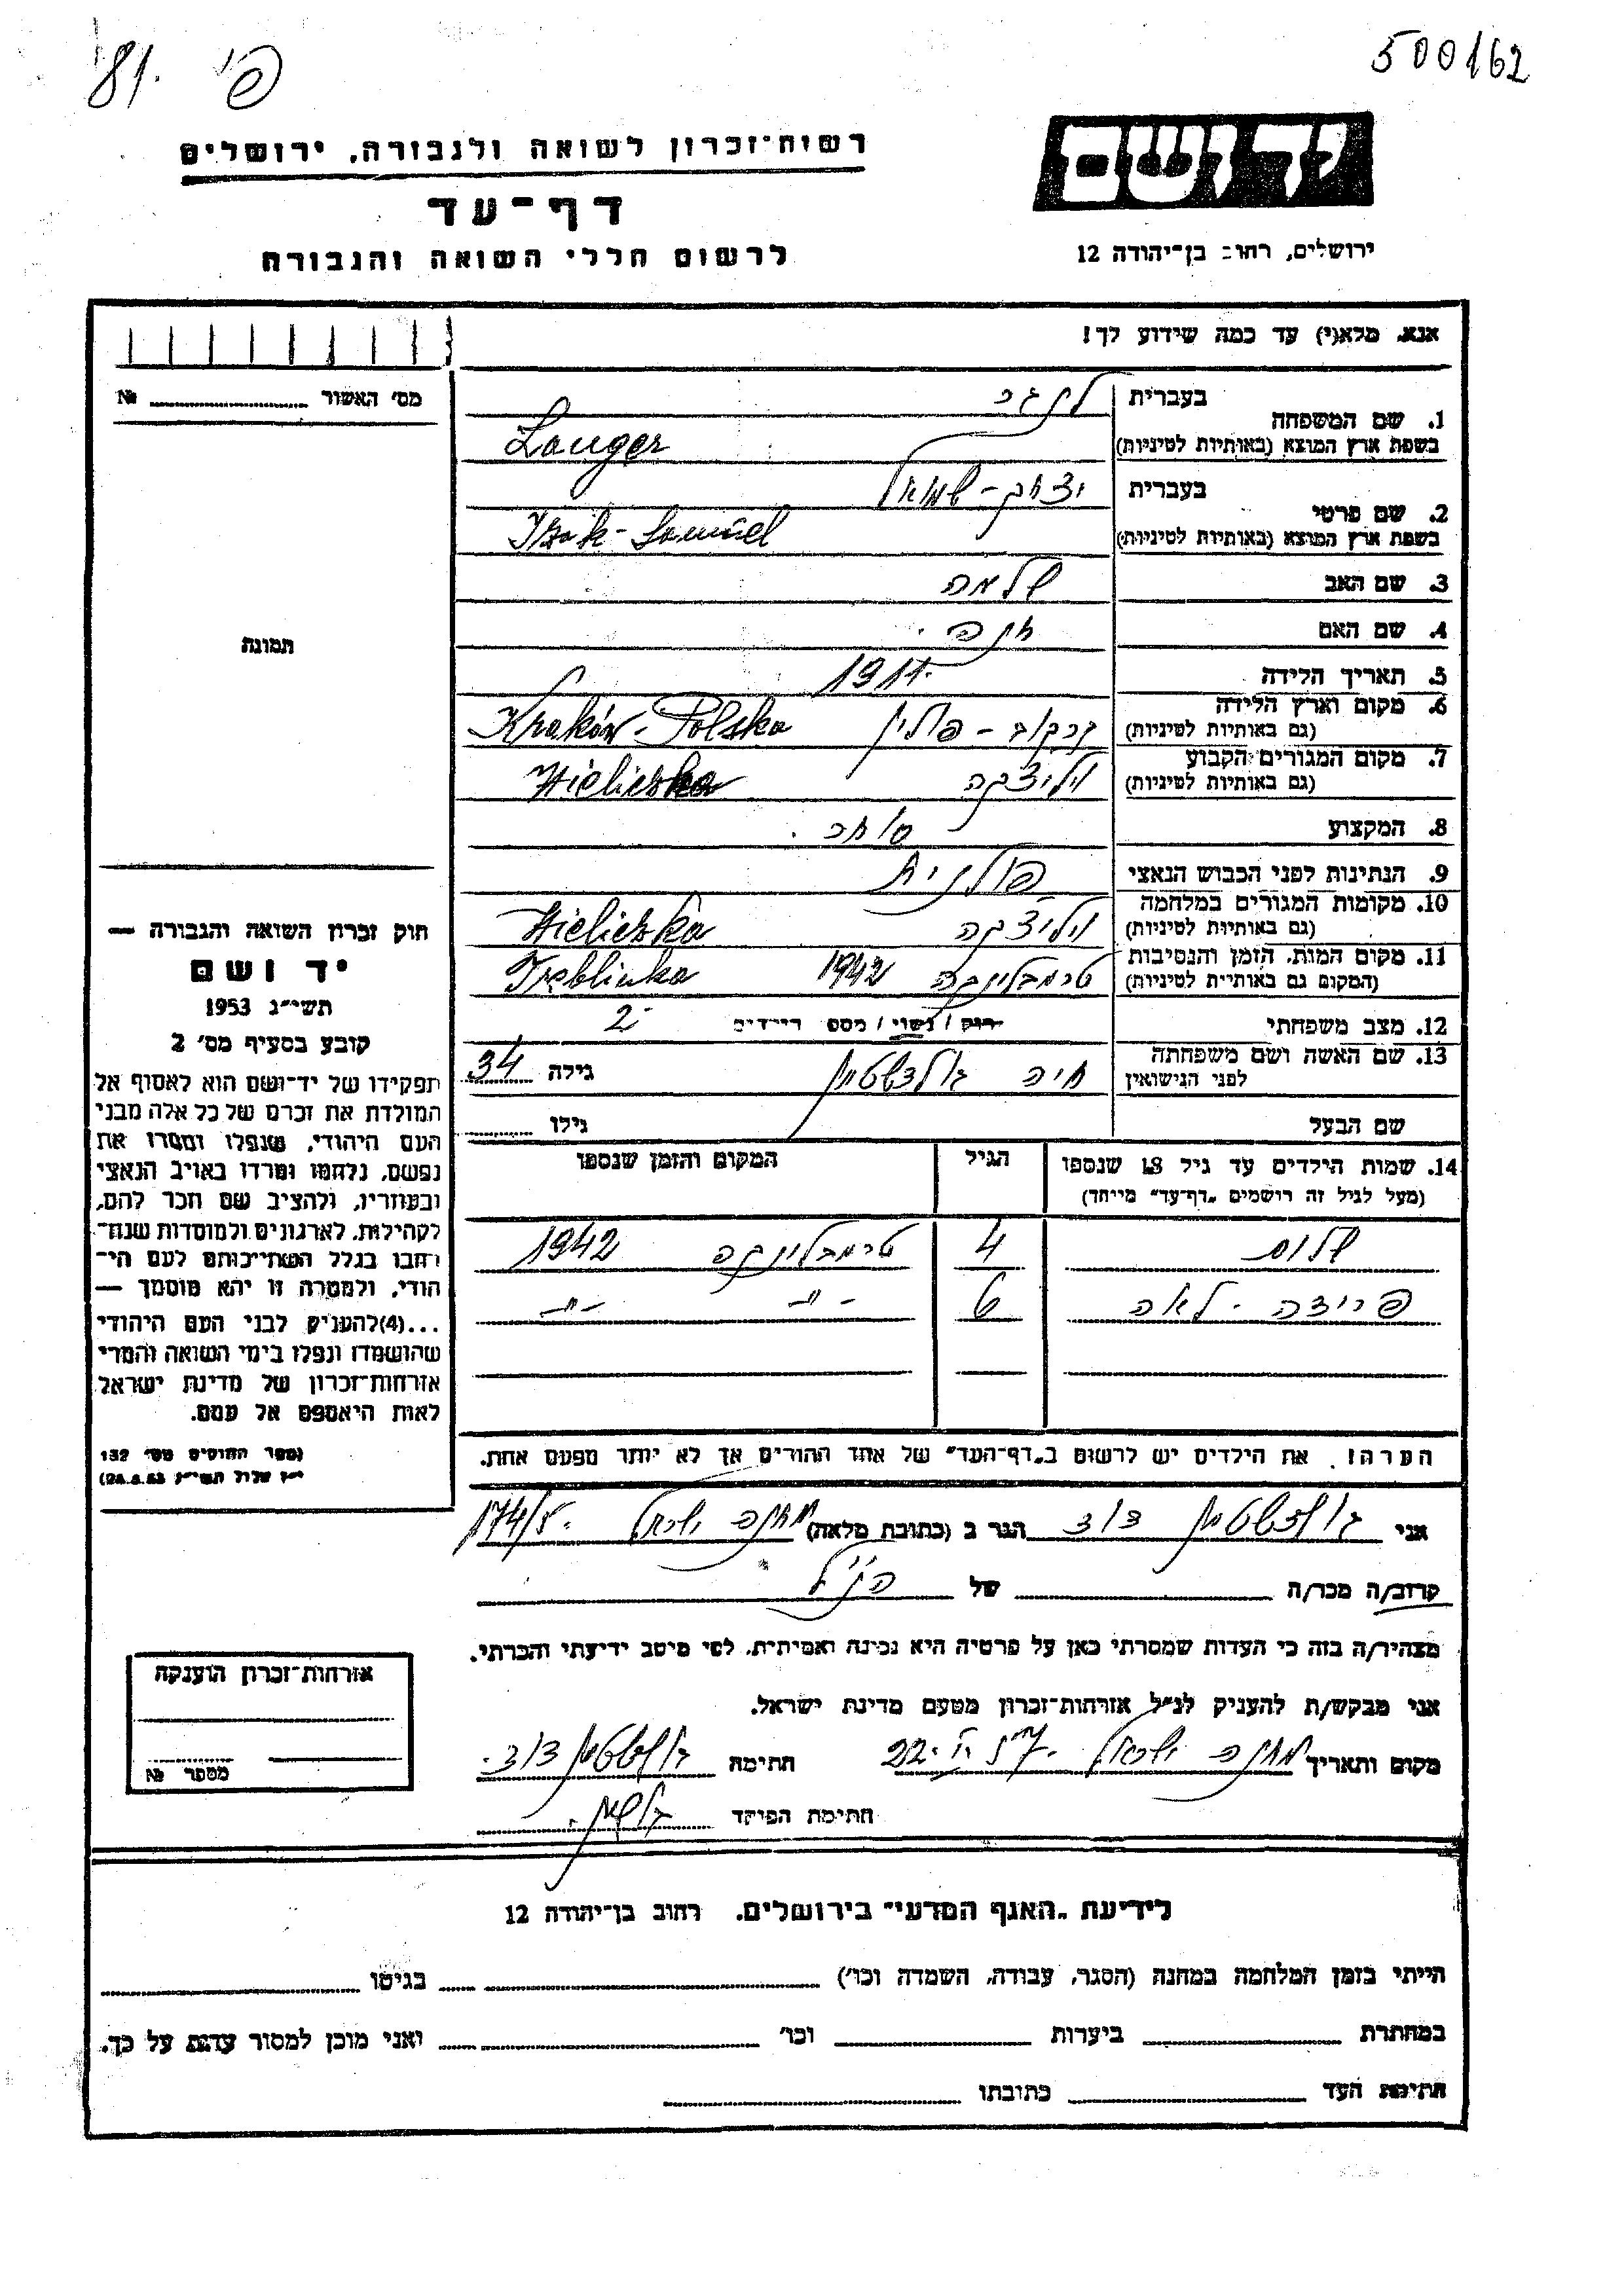 500162
81. פי
יד ושם
ירושלים, רחוב בן־יהודה 12
רשות־זכרון לשואה ולגבורה, ירושלים
דף־עד
לרשום חללי השואה והגבורה
אנא, מלא(י) עד כמה שידוע לך!
מס' האשור № 
1. שם המשפחה בעברית לנגר
בשפת ארץ המוצא (באותיות לטיניות) Langer
2. שם פרטי בעברית יצחק - שמואל
בשפת ארץ המוצא (באותיות לטיניות) Izak - Samuel
3. שם האב שלמה
4. שם האם חנה.
5. תאריך הלידה
6. מקום וארץ הלידה (גם באותיות לטיניות) קרקוב - פולין Kraków - Polska
7. מקום המגורים הקבוע (גם באותיות לטיניות) וליצקה Wieliczka
8. המקצוע סוחר.
9. הנתינות לפני הכבוש הנאצי פולנית
10. מקומות המגורים במלחמה (גם באותיות לטיניות) וליצקה Wieliczka
11. מקום המות, הזמן והנסיבות (המקום גם באותיות לטיניות) טרמבלינקה 1942 Tręblinka
12. מצב משפחתי רווק / נשוי / מספ הילדים 2
13. שם האשה ושם משפחתה לפני הנישואין חיה גולדשטיין גילה 34
שם הבעל גילו
14. שמות הילדים עד גיל 18 שנספו הגיל המקום והזמן שנספו
(מעל לגיל זה רושמים „דף־עד" מיוחד)
שלום 4 טרמבלינקה 1942
פריידה - לאה 6 -"- -"-
הערה! את הילדים יש לרשום ב„דף־העד" של אחד ההורים אך לא יותר מפעם אחת.
תמונה
חוק זכרון השואה והגבורה —
יד ושם
תשי"ג 1953
קובע בסעיף מס' 2
תפקידו של יד־ושם הוא לאסוף אל
המולדת את זכרם של כל אלה מבני
העם היהודי, שנפלו ומסרו את
נפשם, נלחמו ומרדו באויב הנאצי
ובעוזריו, ולהציב שם וזכר להם,
לקהילות, לארגונים ולמוסדות שנח־
רבו בגלל השתייכותם לעם הי־
הודי, ולמטרה זו יהא מוסמך —
...(4) להעניק לבני העם היהודי
שהושמדו ונפלו בימי השואה והמרי
אזרחות־זכרון של מדינת ישראל
לאות היאספם אל עמם.
(ספר החוקים מס' 132
י"ז אלול תשי"ג 28.8.53)
אני גולדשטיין דוד הגר ב (כתובת מלאה) מחנה ישראל 174/5.
קרוב/ה מכר/ה של הנ"ל
מצהיר/ה בזה כי העדות שמסרתי כאן על פרטיה היא נכונה ואמיתית, לפי מיטב ידיעתי והכרתי.
אני מבקש/ת להעניק לנ"ל אזרחות־זכרון מטעם מדינת ישראל.
מקום ותאריך מחנה ישראל חתימה גולדשטיין דוד.
חתימת הפוקד
אזרחות־זכרון הוענקה
מספר №
לידיעת „האגף המדעי" בירושלים, רחוב בן־יהודה 12
הייתי בזמן המלחמה במחנה (הסגר, עבודה, השמדה וכו') בגיטו
במחתרת ביערות וכו' ואני מוכן למסור עדות על כך.
חתימת העד כתובתו